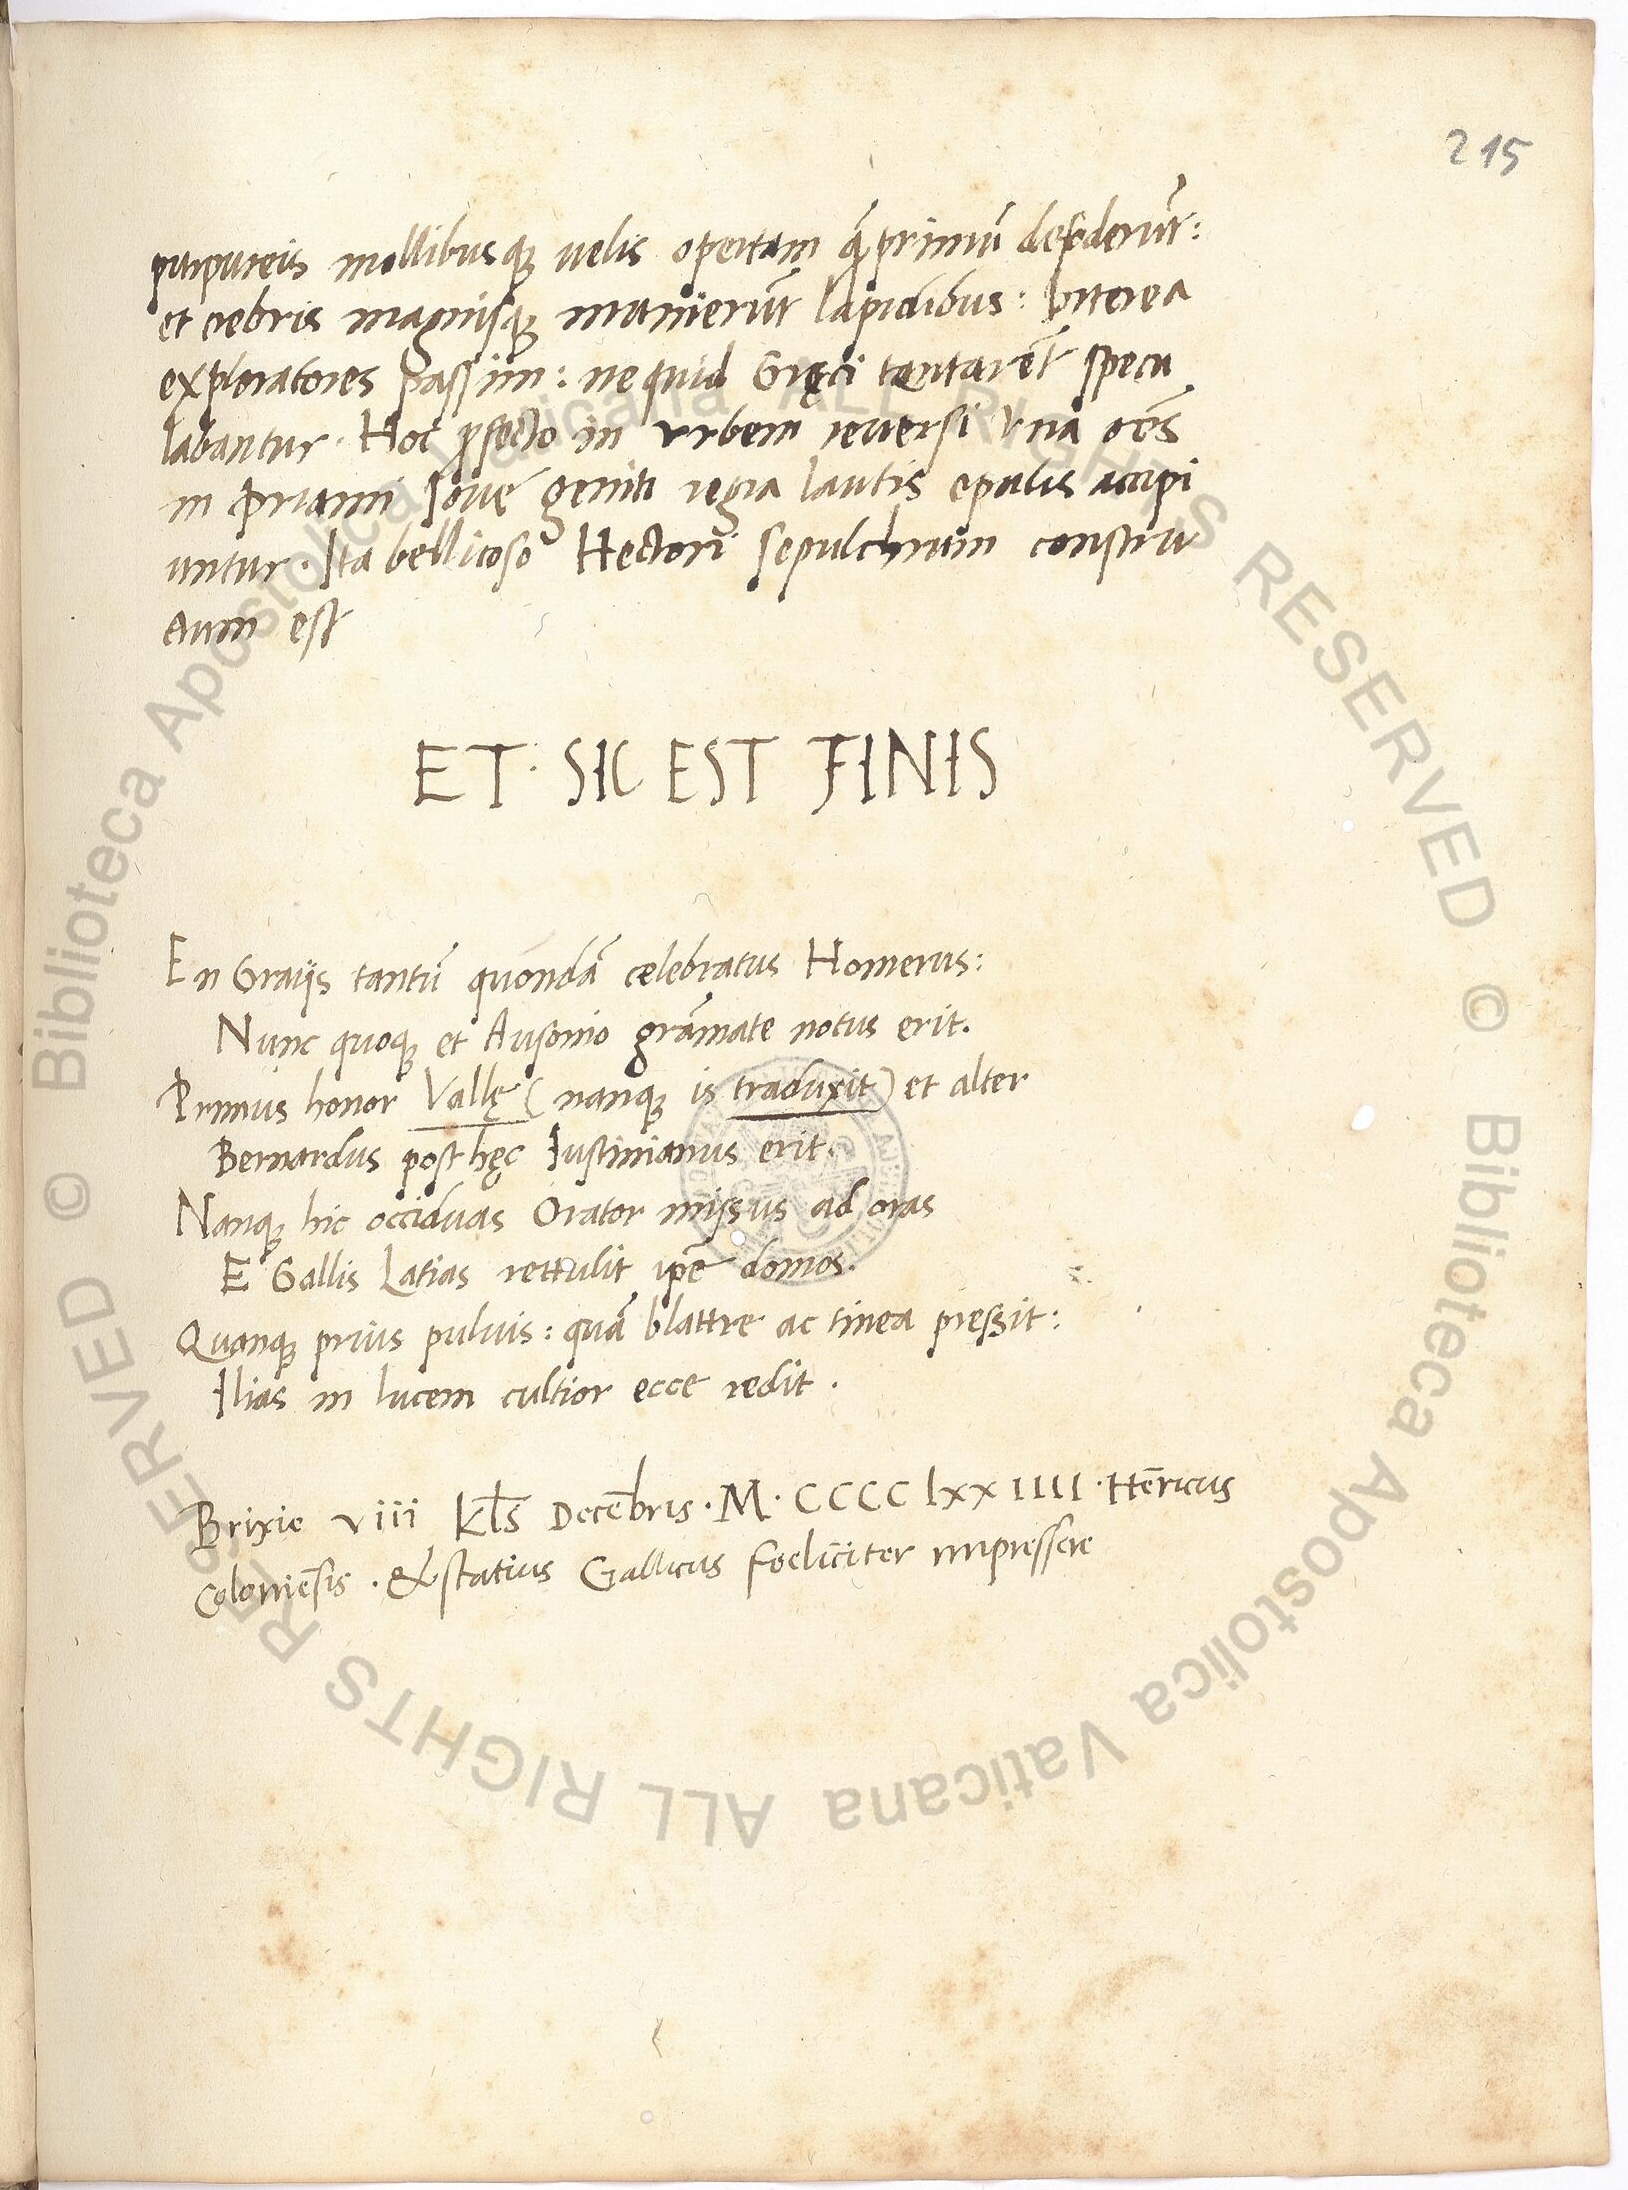 215
purpureis mollibusq; uelis opertam q̄ꝫprimū defoderūt:
et crebris magnisq; munierūt lapidibus: Interea
exploratores passim: ne quid Gręci tentarēt specu
labantur. Hoc ꝓfecto in vrbem reuersi vna oēs
in Priami Ioue geniti regia lautis epulis accipi
untur. Ita bellicoso Hectori sepulchrum constru
ctum est
ET. SIC EST FINIS
En Graijs tantū quondā celebratus Homerus:
Nunc quoq; et Ausonio grāmate notus erit.
Primus honor Vallę (nanq; is traduxit) et alter
Bernardus post hęc Iustinianus erit.
Nanq; hic occiduas Orator missus ad oras
E Gallis Latias rettulit ip̄e domos.
Quanq; prius puluis: quā blattre ac tinea pressit:
Ilias in lucem cultior ecce redit.
Brixie viii kl̄s Decēbris. M. CCCC lxxIIII. Hēricus
Coloniēsis. & statius Gallicus foeliciter impressere
© Biblioteca Apostolica Vaticana ALL RIGHTS RESERVED © Biblioteca Apostolica Vaticana ALL RIGHTS RESERVED